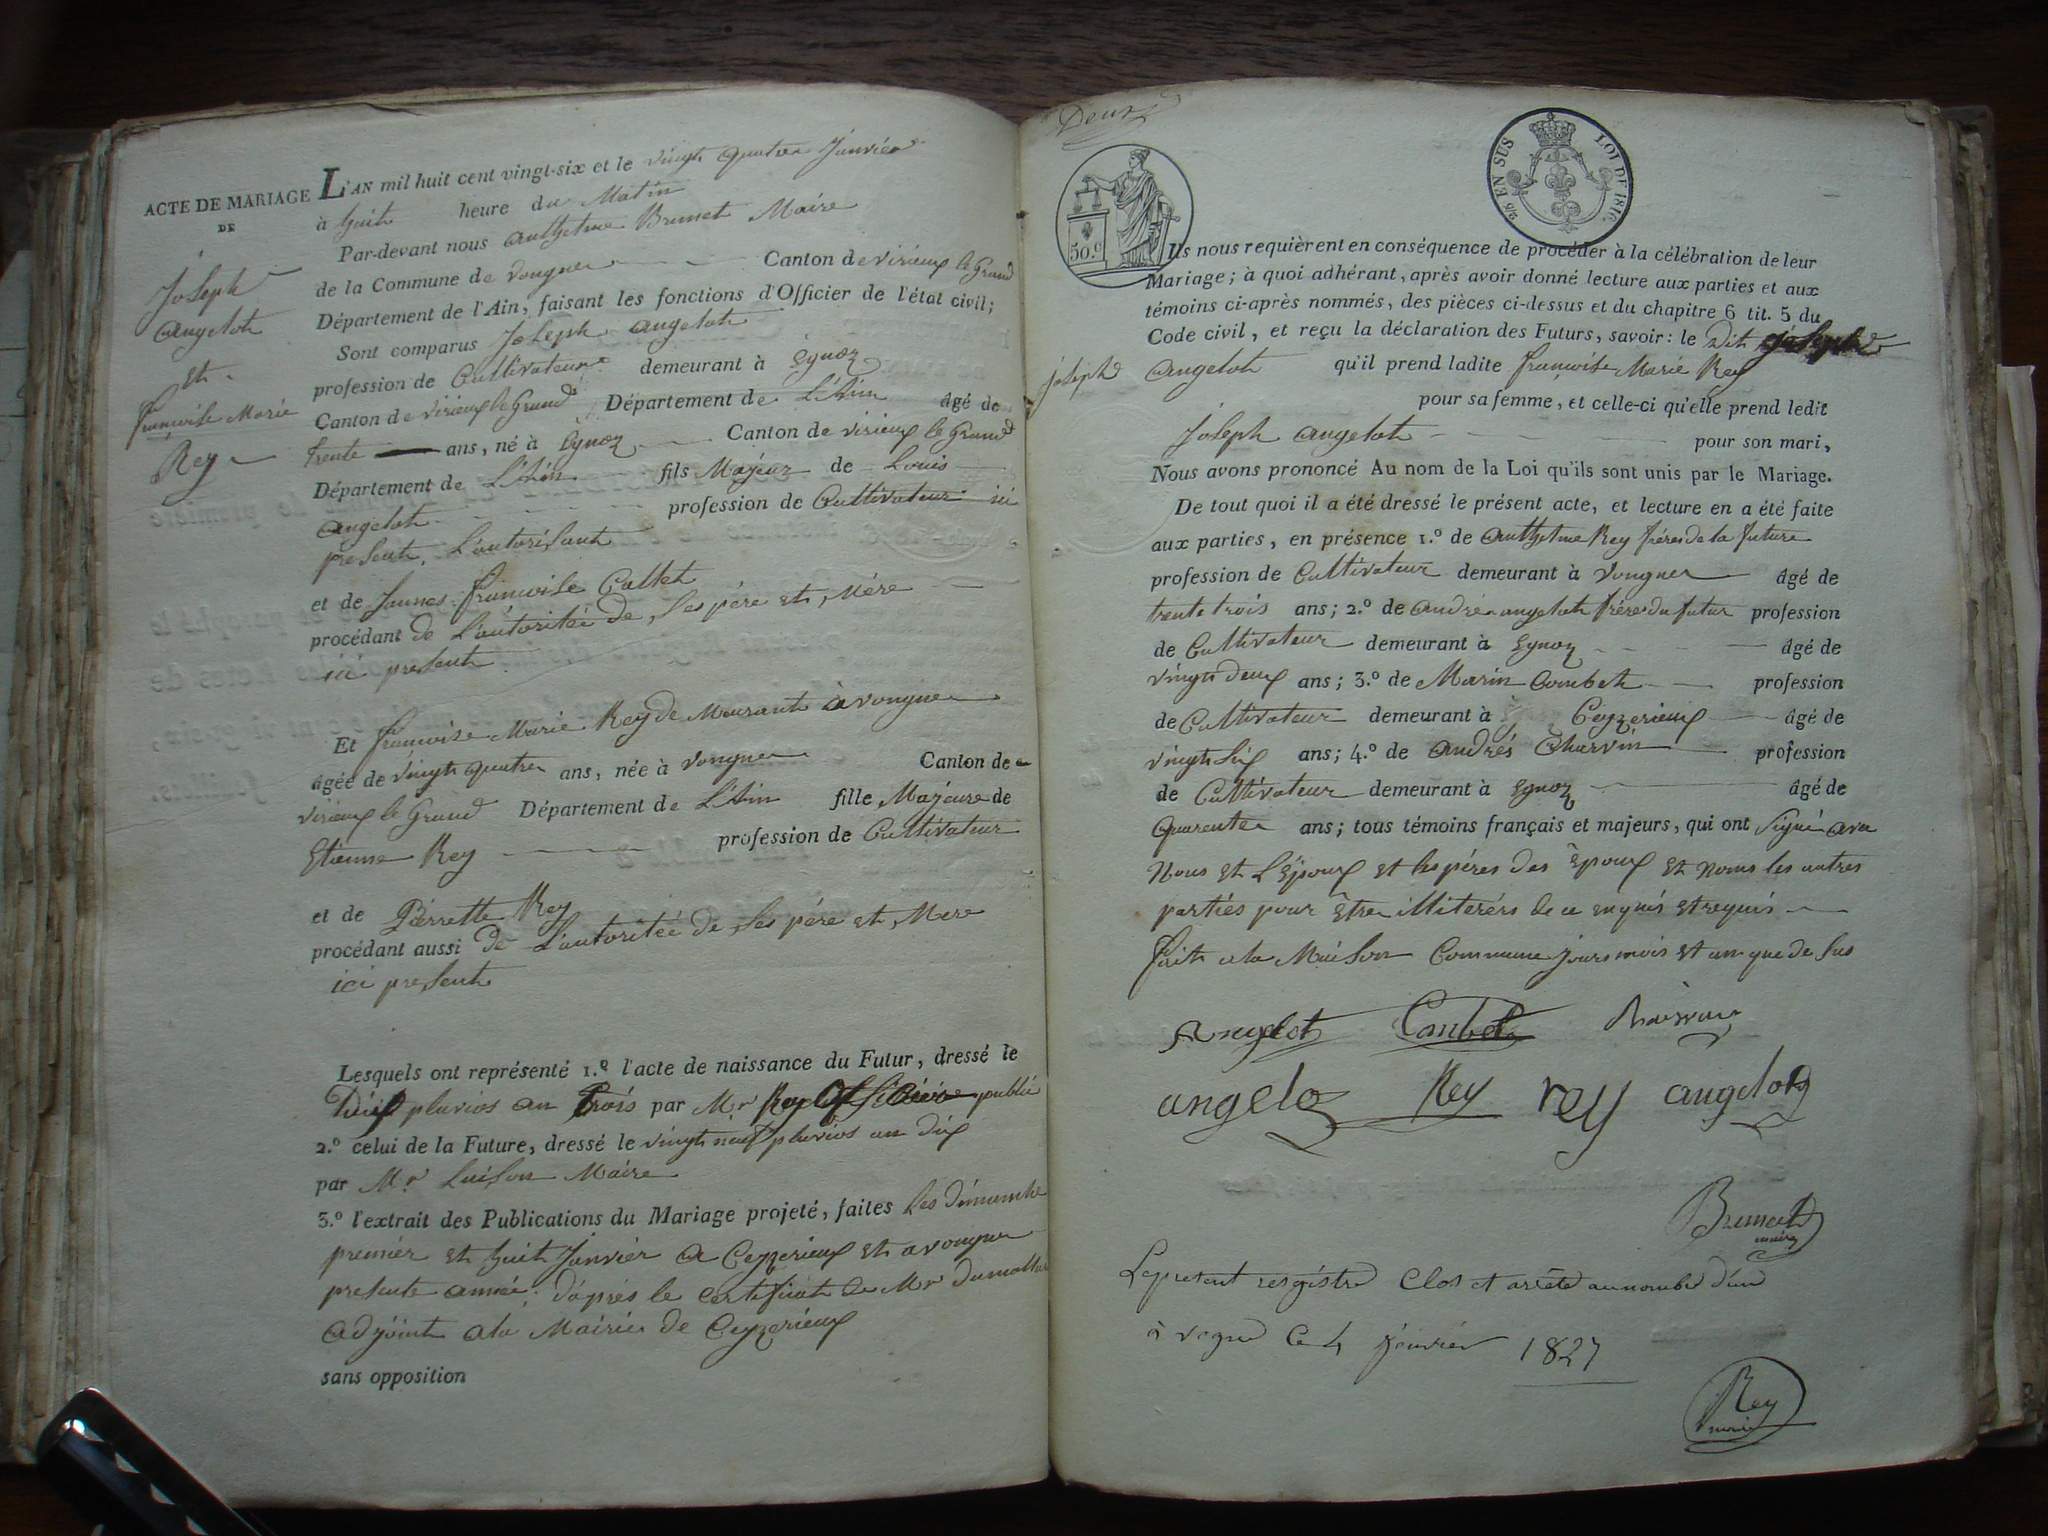 ACTE DE MARIAGE
DE
Joseph
angelot
et
françoise Marie
Rey
L'AN mil huit cent vingt-six et le vingt quatre Janvier
à huit heure du Matin
Par-devant nous Anthelme Brunet Maire
de la Commune de vongnes Canton de virieux le Grand
Département de l'Ain, faisant les fonctions d'Officier de l'état civil;
Sont comparus Joseph angelot
profession de Cultivateur demeurant à Eynoz
Canton de virieux le Grand Département de L'Ain âgé de
trente ans, né à Eynoz Canton de virieux le Grand
Département de L'Ain fils Majeur de Louis
angelot profession de Cultivateur ici
present, L'autorisant
et de Jeanne françoise Callet
procédant de L'autoritée de ses père et Mère
ici present
Et françoise Marie Rey demeurant à vongnes
âgée de vingt quatre ans, née à vongnes Canton de
virieux le Grand Département de L'Ain fille Majeure de
Etienne Rey profession de Cultivateur
et de Pierrette Rey
procédant aussi de L'autoritée de ses père et Mere
ici present
Lesquels ont représenté 1.º l'acte de naissance du Futur, dressé le
pluvios an trois par Mr Rey officier publié
2.º celui de la Future, dressé le vingt neuf pluvios an dix
par Mr Luison Maire
3.º l'extrait des Publications du Mariage projeté, faites les dimanche
premier et huit Janvier a Ceyzerieux et a vongne
presente année d'après le certificat de Mr dumollar
adjoint a la Mairie de Ceyzerieux
sans opposition
Deux
50.c
EN SUS
LOI DE 1816
Ils nous requièrent en conséquence de procéder à la célébration de leur
Mariage; à quoi adhérant, après avoir donné lecture aux parties et aux
témoins ci-après nommés, des pièces ci-dessus et du chapitre 6 tit. 5 du
Code civil, et reçu la déclaration des Futurs, savoir: le Dit
joseph angelot qu'il prend ladite françoise Marie Rey
pour sa femme, et celle-ci qu'elle prend ledit
Joseph angelot pour son mari,
Nous avons prononcé Au nom de la Loi qu'ils sont unis par le Mariage.
De tout quoi il a été dressé le présent acte, et lecture en a été faite
aux parties, en présence 1.º de anthelme Rey frère de la future
profession de Cultivateur demeurant à vongnes âgé de
trente trois ans; 2.º de andré angelot frère du futur profession
de Cultivateur demeurant à Eynoz âgé de
vingt deux ans; 3.º de Marin Combet profession
de Cultivateur demeurant à Ceyzerieux âgé de
vingt six ans; 4.º de andrés Charvin profession
de Cultivateur demeurant à Eynoz âgé de
quarente ans; tous témoins français et majeurs, qui ont signé avec
Nous et L'Epoux et les pères des Epoux et nom les autres
parties pour être illiterés de ce enquis et requis
fait a la Maison Commune jours mois et an que de sus
Angelot Combet
angelo Rey rey angelot
Brunet
maire
Le present resgistre Clos et arrêté au nombre d'un
à vogne Ce 4 janvier 1827
Rey
maire